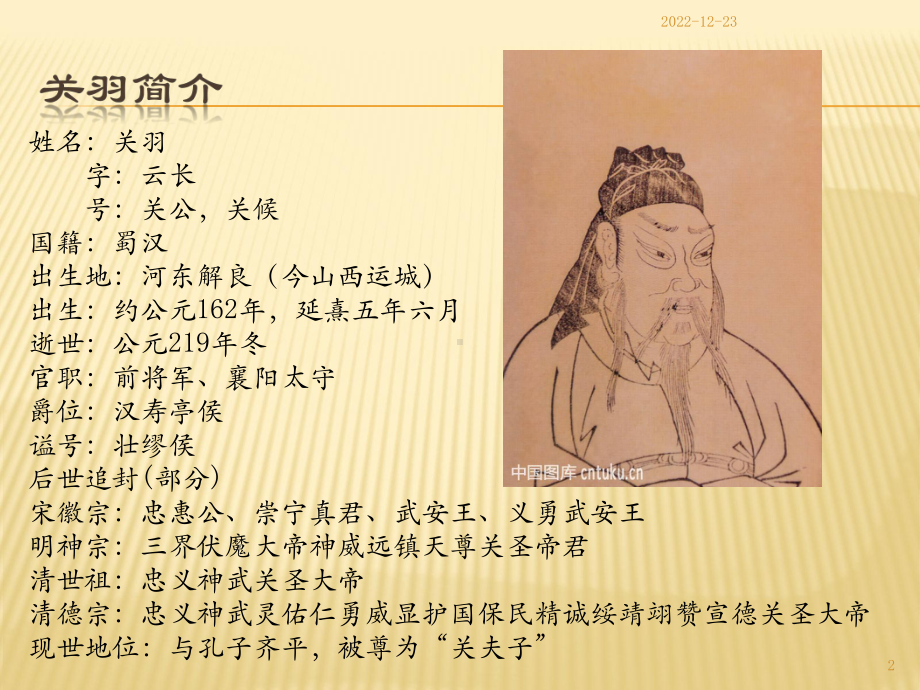 2022-12-23
关羽简介
姓名：关羽
字：云长
号：关公，关候
国籍：蜀汉
出生地：河东解良（今山西运城）
出生：约公元162年，延熹五年六月
逝世：公元219年冬
官职：前将军、襄阳太守
爵位：汉寿亭侯
谥号：壮缪侯
后世追封(部分)
宋徽宗：忠惠公、崇宁真君、武安王、义勇武安王
明神宗：三界伏魔大帝神威远镇天尊关圣帝君
清世祖：忠义神武关圣大帝
清德宗：忠义神武灵佑仁勇威显护国保民精诚绥靖翊赞宣德关圣大帝
现世地位：与孔子齐平，被尊为“关夫子”
中国图库 cntuku.cn
2